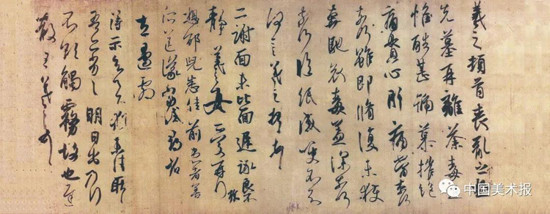 羲之頓首喪亂之極
先墓再離荼毒追
惟酷甚號慕摧絕
痛貫心肝痛當奈何
奈何雖即脩復未獲
奔馳哀毒益深奈何
奈何臨紙感哽不知
何言羲之頓首頓首
二謝面未比面遲詠良
不靜羲之女愛再拜
想邵兒悉佳前患者善
所送議當試尋省
左邊劇
得示知足下猶未佳耿
耿吾亦劣劣明日出乃行
不欲觸霧故也遲
散王羲之頓首
中国美术报